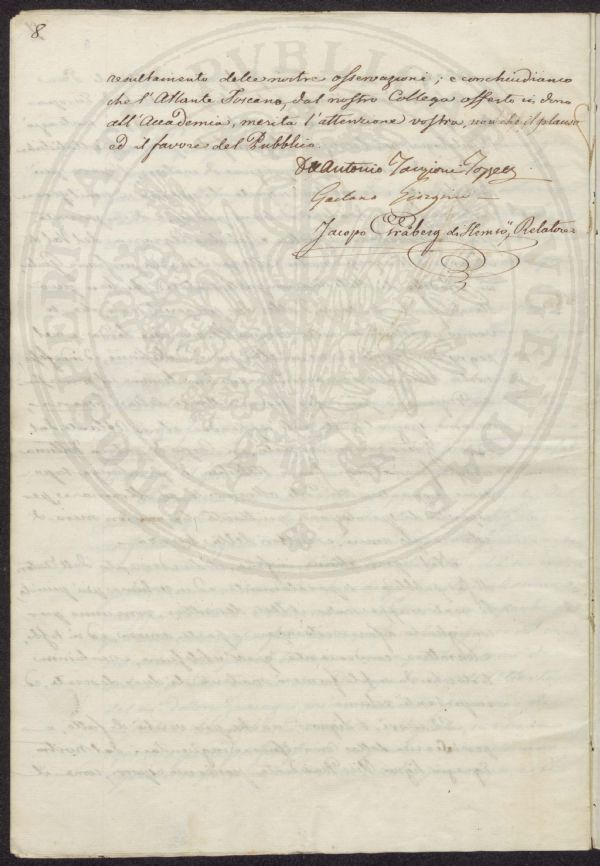 8
resultamento delle nostre osservazioni; e conchiudiamo
che l'Atlante Toscano, dal nostro Collega offerto in dono
all'Accademia, merita l'attenzione vostra, non che il plauso
ed il favore del Pubblico.
Antonio Targioni Tozzetti
Gaetano Giorgini
Jacopo Gråberg di Hemsö, Relatore
PVBLICAE
PROSPERITATI AVGENDAE